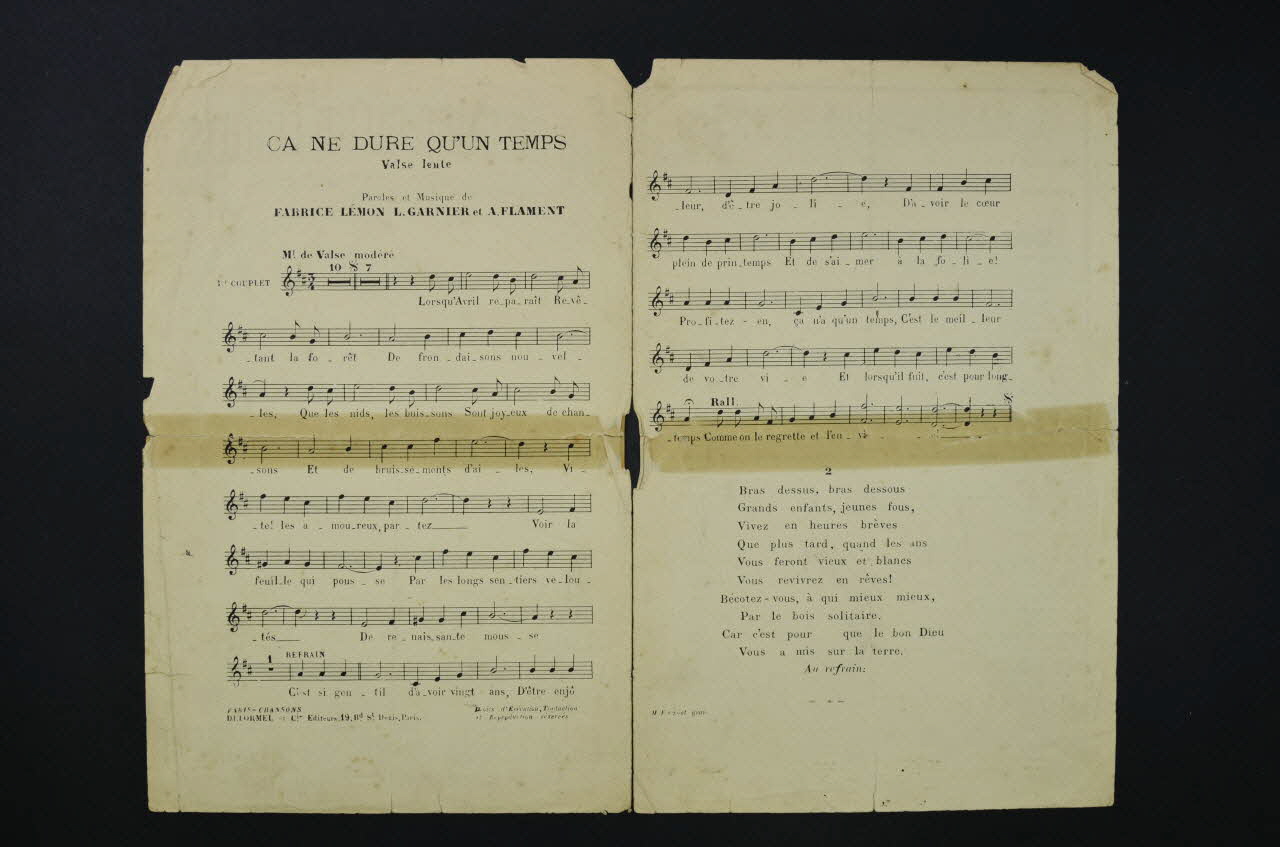 ÇA NE DURE QU'UN TEMPS
Valse lente
Paroles et Musique de
FABRICE LÉMON L. GARNIER et A. FLAMENT
Mt. de Valse modéré
10 7
1er COUPLET
Lorsqu'Avril re_pa_raît Re_vê_
_tant la fo_rêt De fron_dai_sons nou_vel_
_les, Que les nids, les buis_sons Sont joy_eux de chan_
_sons Et de bruis_se_ments d'ai_les, Vi_
_te! les a_mou_reux, par_tez___ Voir la
feuil_le qui pous_se Par les longs sen_tiers ve_lou_
_tés___ De re_nais_san_te mous_se
1 REFRAIN
C'est si gen_til d'a_voir vingt ans, D'être enjô
PARIS-CHANSONS
DELORMEL et Cie Editeurs, 19, Bd St. Denis, Paris.
Droits d'Exécution, Traduction
et Reproduction réservés
_leur, d'ê_tre jo_li_e, D'a_voir le cœur
plein de prin_temps Et de s'ai_mer à la fo_li_e!
Pro_fi_tez-en, ça n'a qu'un temps, C'est le meil_leur
de vo_tre vi_e Et lorsqu'il fuit, c'est pour long_
Rall.
_temps Comme on le regrette et l'en_vi_
2
Bras dessus, bras dessous
Grands enfants, jeunes fous,
Vivez en heures brèves
Que plus tard, quand les ans
Vous feront vieux et blancs
Vous revivrez en rêves!
Bécotez-vous, à qui mieux mieux,
Par le bois solitaire.
Car c'est pour que le bon Dieu
Vous a mis sur la terre.
Au refrain:
grav.